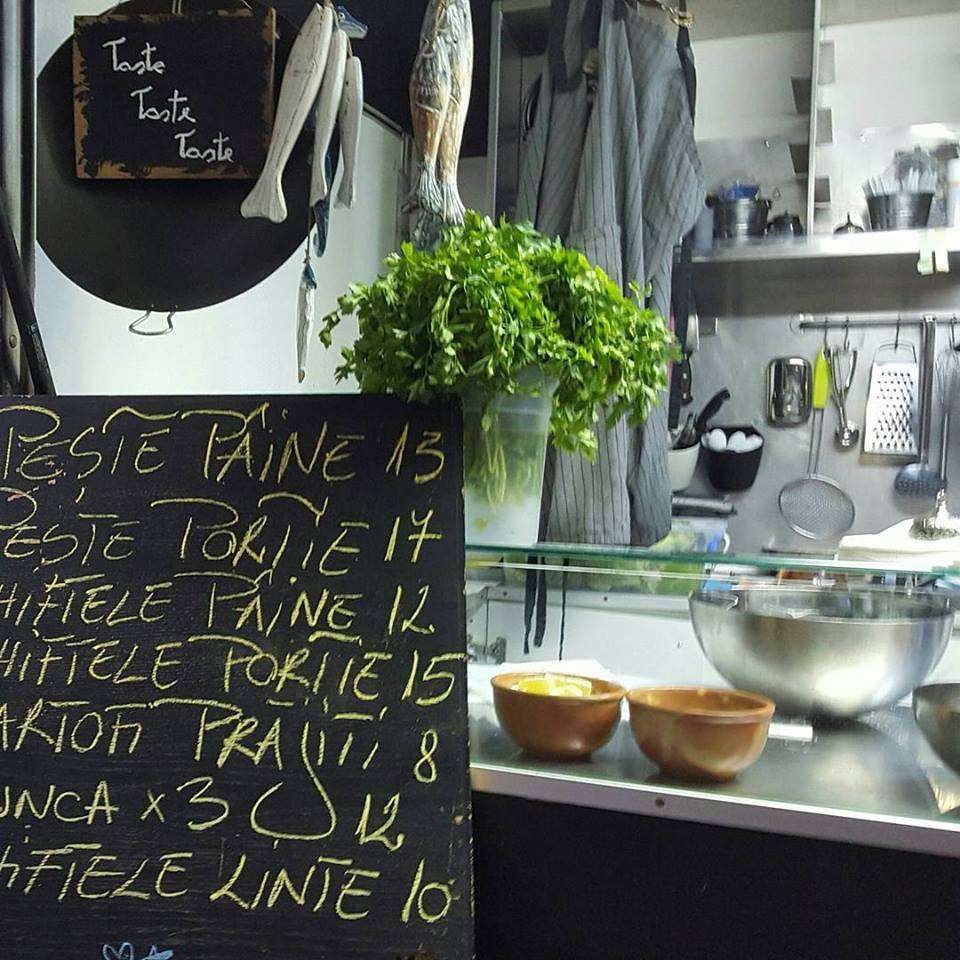 Taste
Taste
Taste
PEȘTE PÂINE 13
PEȘTE PORȚIE 17
HIFTELE PÂINE 12
HIFTELE PORȚIE 15
ARTOFI PRĂJIȚI 8
UNCA x3 12
HIFTELE LINTE 10